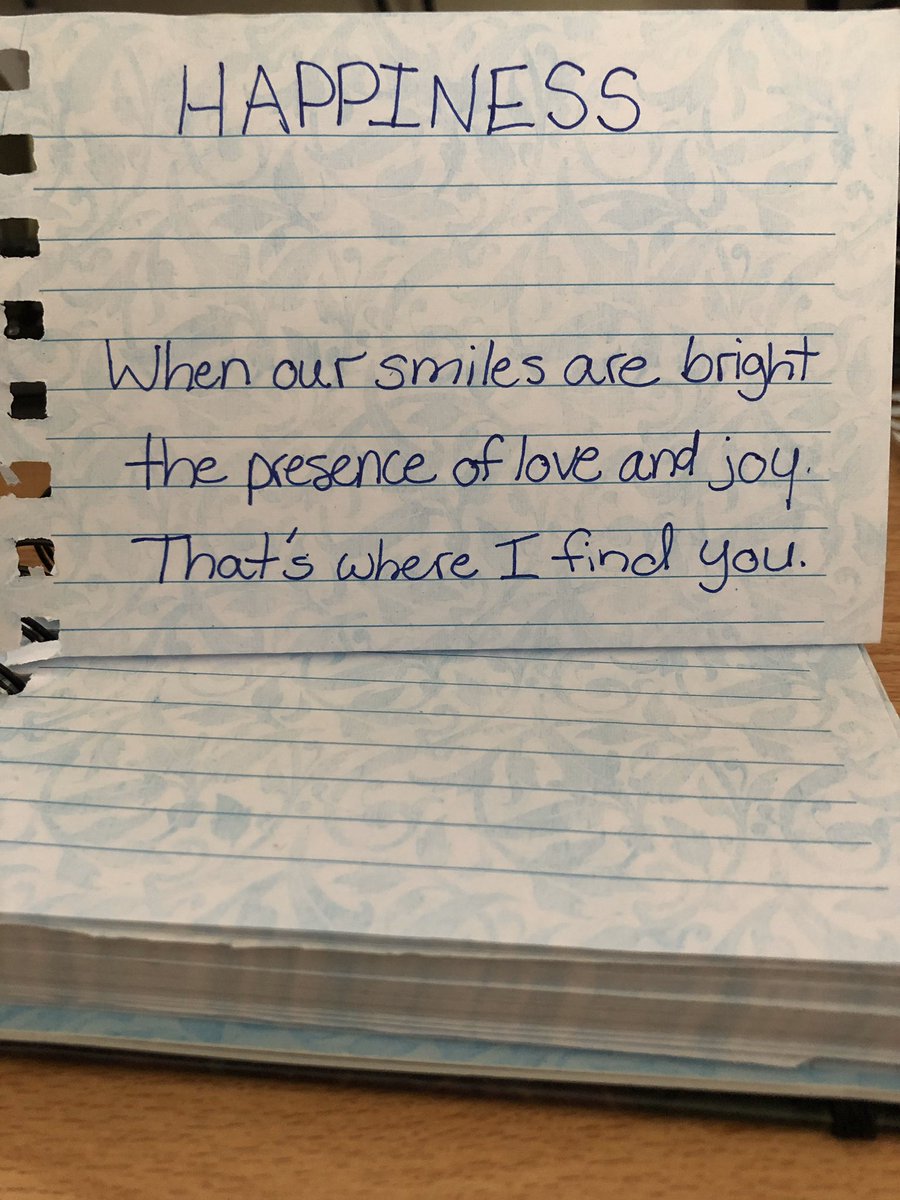 HAPPINESS
When our smiles are bright
the presence of love and joy.
That's where I find you.